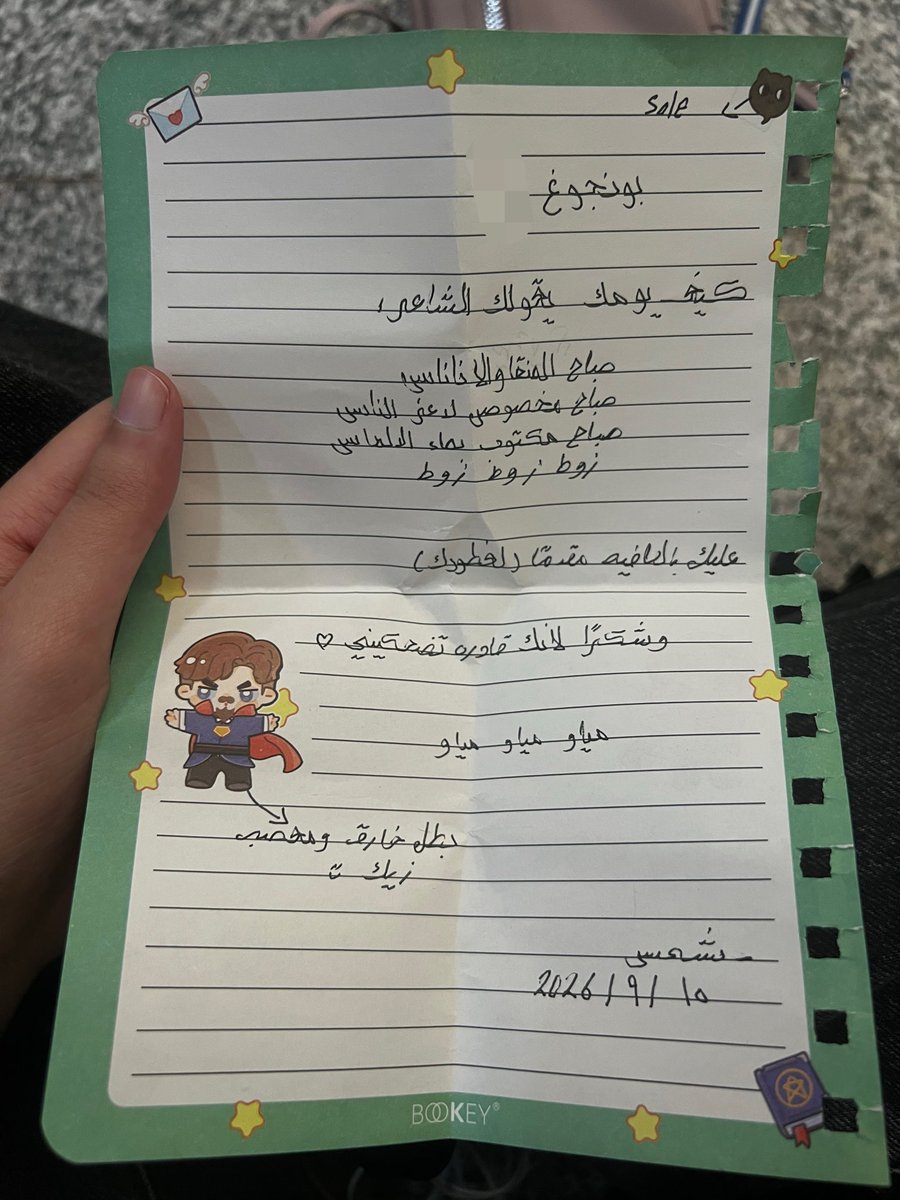 sale
بونجوغ
كيف يومك يقولك الشاعر،
صباح المنقا والاناناس،
صباح مخصوص لاعز الناس
صباح مكتوب بماء الالماس
زوط زوط زوط
عليك بالعافيه مقدمًا (لفطورك)
وشكرًا لانك قادره تضحكيني ♡
مياو مياو مياو
بطل خارق ومعصب
زيك
شمس
2026 / ٩ / ١٠
BOOKEY®